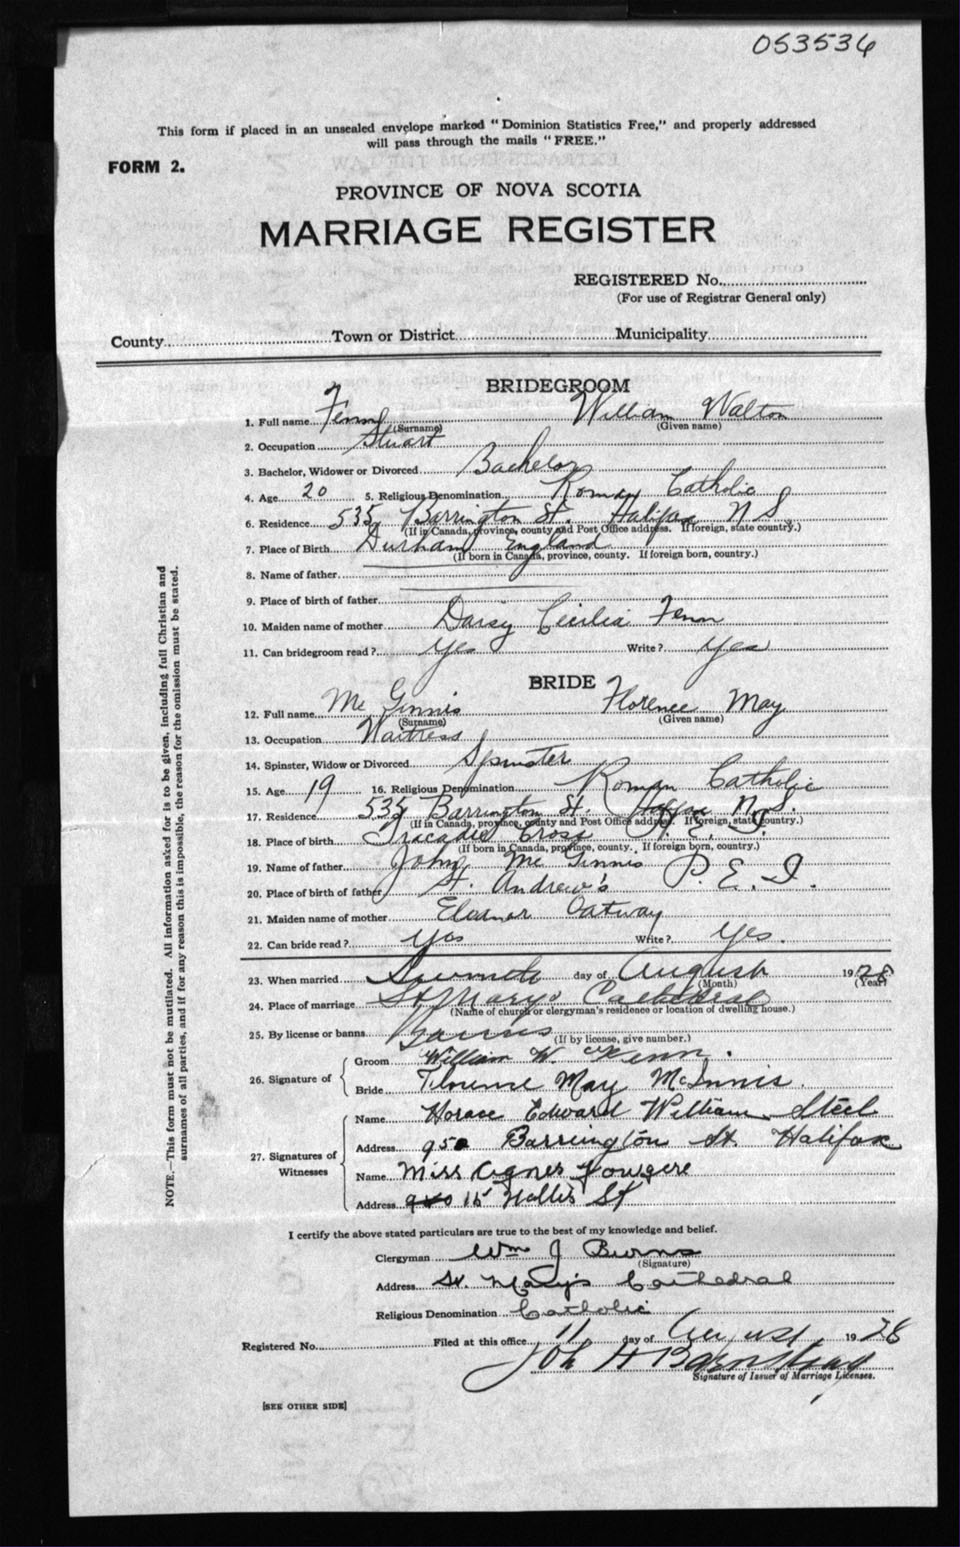 053536
This form if placed in an unsealed envelope marked "Dominion Statistics Free," and properly addressed
will pass through the mails "FREE."
FORM 2.
PROVINCE OF NOVA SCOTIA
MARRIAGE REGISTER
REGISTERED No.
(For use of Registrar General only)
County Town or District Municipality
BRIDEGROOM
1. Full name Fenn William Walton
(Surname) (Given name)
2. Occupation Stuart
3. Bachelor, Widower or Divorced Bachelor
4. Age 20 5. Religious Denomination Roman Catholic
6. Residence 535 Barrington St. Halifax N.S.
(If in Canada, province, county and Post Office address. If foreign, state country.)
7. Place of Birth Durham England
(If born in Canada, province, county. If foreign born, country.)
8. Name of father
9. Place of birth of father
10. Maiden name of mother Daisy Cecilia Fenn
11. Can bridegroom read? yes Write? yes
BRIDE
12. Full name Mc Ginnis Florence May
(Surname) (Given name)
13. Occupation Waitress
14. Spinster, Widow or Divorced Spinster
15. Age 19 16. Religious Denomination Roman Catholic
17. Residence 535 Barrington St. Halifax N.S.
(If in Canada, province, county and Post Office address. If foreign, state country.)
18. Place of birth Tracadie Cross P.E.I.
(If born in Canada, province, county. If foreign born, country.)
19. Name of father John Mc Ginnis
20. Place of birth of father St. Andrew's P.E.I.
21. Maiden name of mother Eleanor Oatway
22. Can bride read? yes Write? yes.
23. When married day of August 1928
(Month) (Year)
24. Place of marriage St Mary's Cathedral
(Name of church or clergyman's residence or location of dwelling house.)
25. By license or banns Banns
(If by license, give number.)
26. Signature of
Groom William W. Fenn.
Bride Florence May McInnis.
27. Signatures of Witnesses
Name Horace Edward William Steel
Address 950 Barrington St. Halifax
Name Miss Agnes Fougere
Address 15 Hollis St
I certify the above stated particulars are true to the best of my knowledge and belief.
Clergyman Wm J Burns
(Signature)
Address St. Mary's Cathedral
Religious Denomination Catholic
Registered No. Filed at this office 11 day of August 1928
H Barnstead
Signature of Issuer of Marriage Licenses.
[SEE OTHER SIDE]
NOTE.—This form must not be mutilated. All information asked for is to be given, including full Christian and
surnames of all parties, and if for any reason this is impossible, the reason for the omission must be stated.